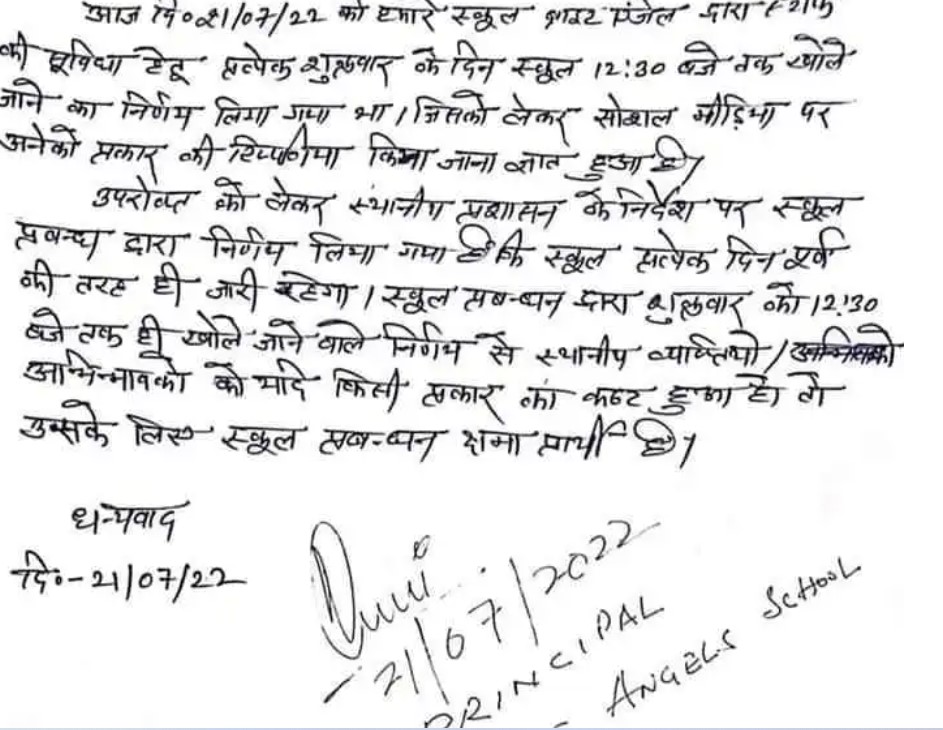 आज दि०21/07/22 को हमारे स्कूल एंजेल द्वारा स्टाफ
की सुविधा हेतू प्रत्येक शुक्रवार के दिन स्कूल 12:30 बजे तक खोले
जाने का निर्णय लिया गया था। जिसको लेकर सोशल मीडिया पर
अनेको प्रकार की टिप्पणीया किया जाना ज्ञात हुआ है।
उपरोक्त को लेकर स्थानीय प्रशासन के निर्देश पर स्कूल
प्रबन्ध द्वारा निर्णय लिया गया है कि स्कूल प्रत्येक दिन पूर्व
की तरह ही जारी रहेगा। स्कूल प्रबन्धन द्वारा शुक्रवार को 12:30
बजे तक ही खोले जाने वाले निर्णय से स्थानीय व्यक्तियो /
अभिभावको को यदि किसी प्रकार का कष्ट हुआ हो तो
उसके लिए स्कूल प्रबन्धन क्षमा प्रार्थी है।
धन्यवाद
दि०-21/07/22
21/07/2022
PRINCIPAL
ANGELS SCHOOL